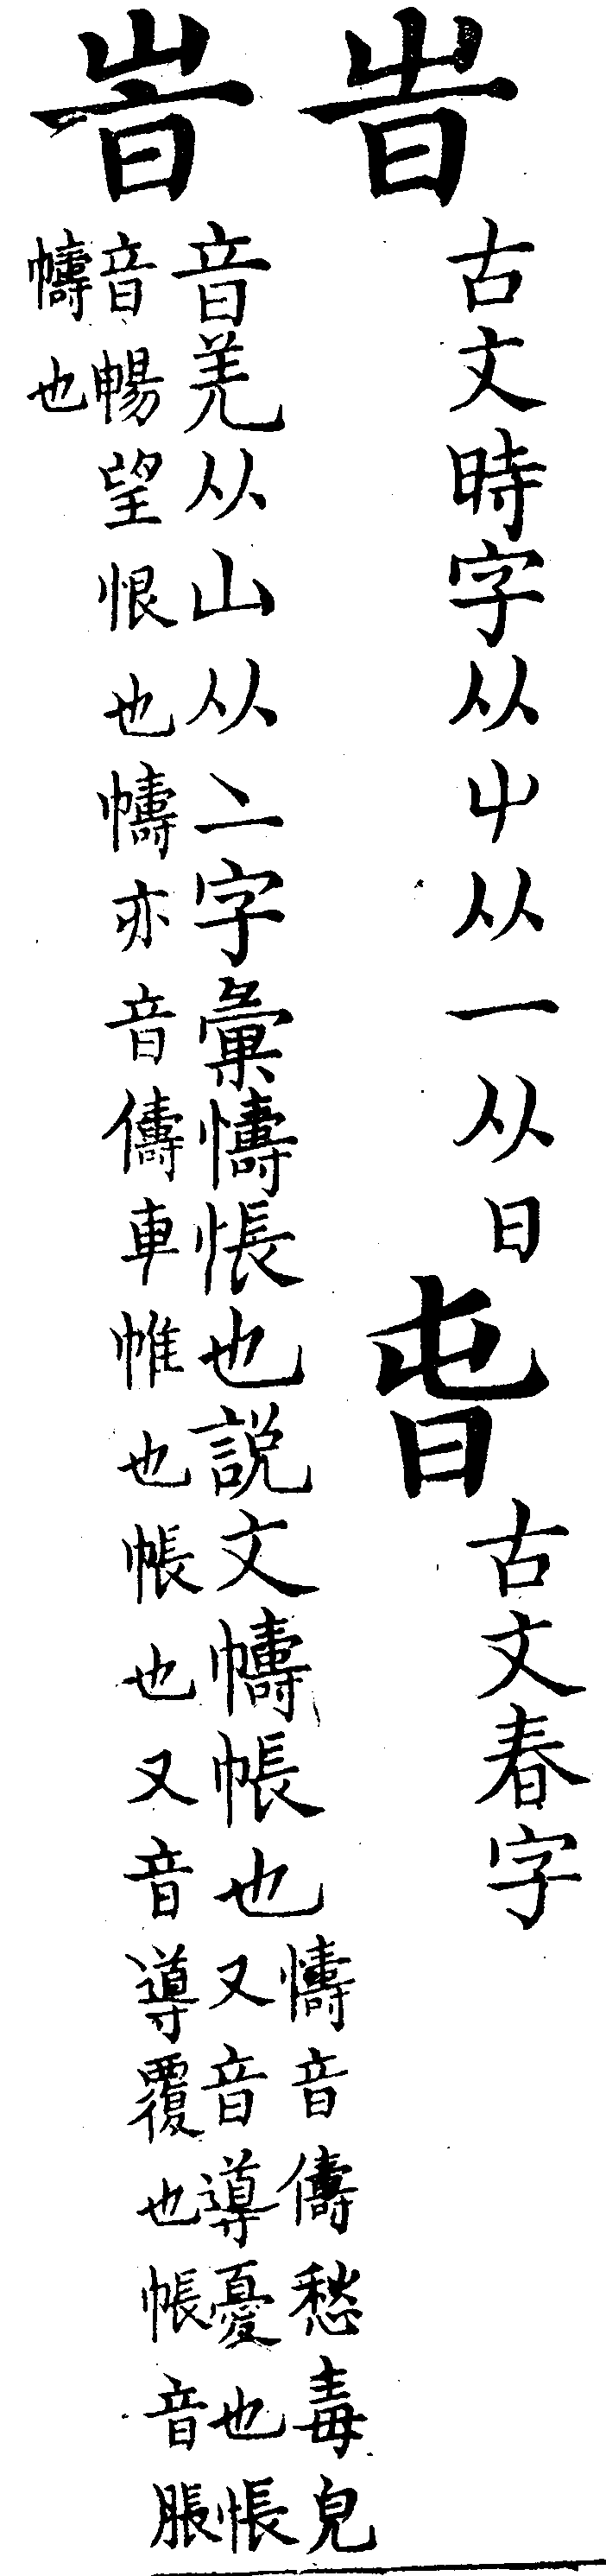 旹古文時字从屮从一从日旾古文春字
懤音儔愁毒皃
音羌从山从亠字彙懤悵也説文幬帳也又音導憂也悵
音暢望恨也幬亦音儔車帷也帳也又音導覆也帳音脹
幬也